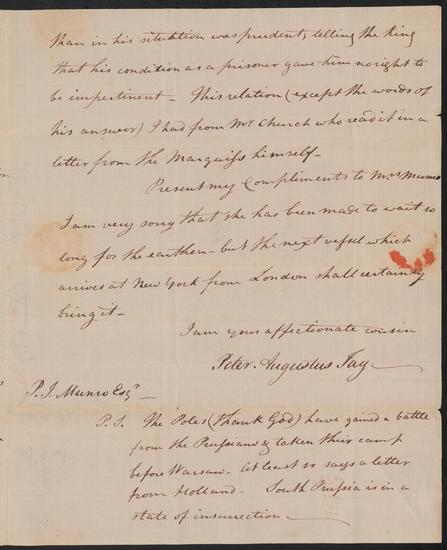 than in his situation was prudent, telling the King
that his condition as a prisoner gave him no right to
be impertinent — This relation (except the words of
his answer) I had from Mr. Church who read it in a
letter from the Marquiss himself —
Present my Compliments to Mrs. Munro
I am very sorry that she has been made to wait so
long for the earthen — but the next vessel which
arrives at New York from London shall certainly
bring it —
I am your affectionate cousin
Peter Augustus Jay
P. J. Munro Esqr. —
P. S. The Poles (thank God) have gained a battle
from the Prussians & taken their camp
before Warsaw. At least so says a letter
from Holland. South Prussia is in a
state of insurrection —